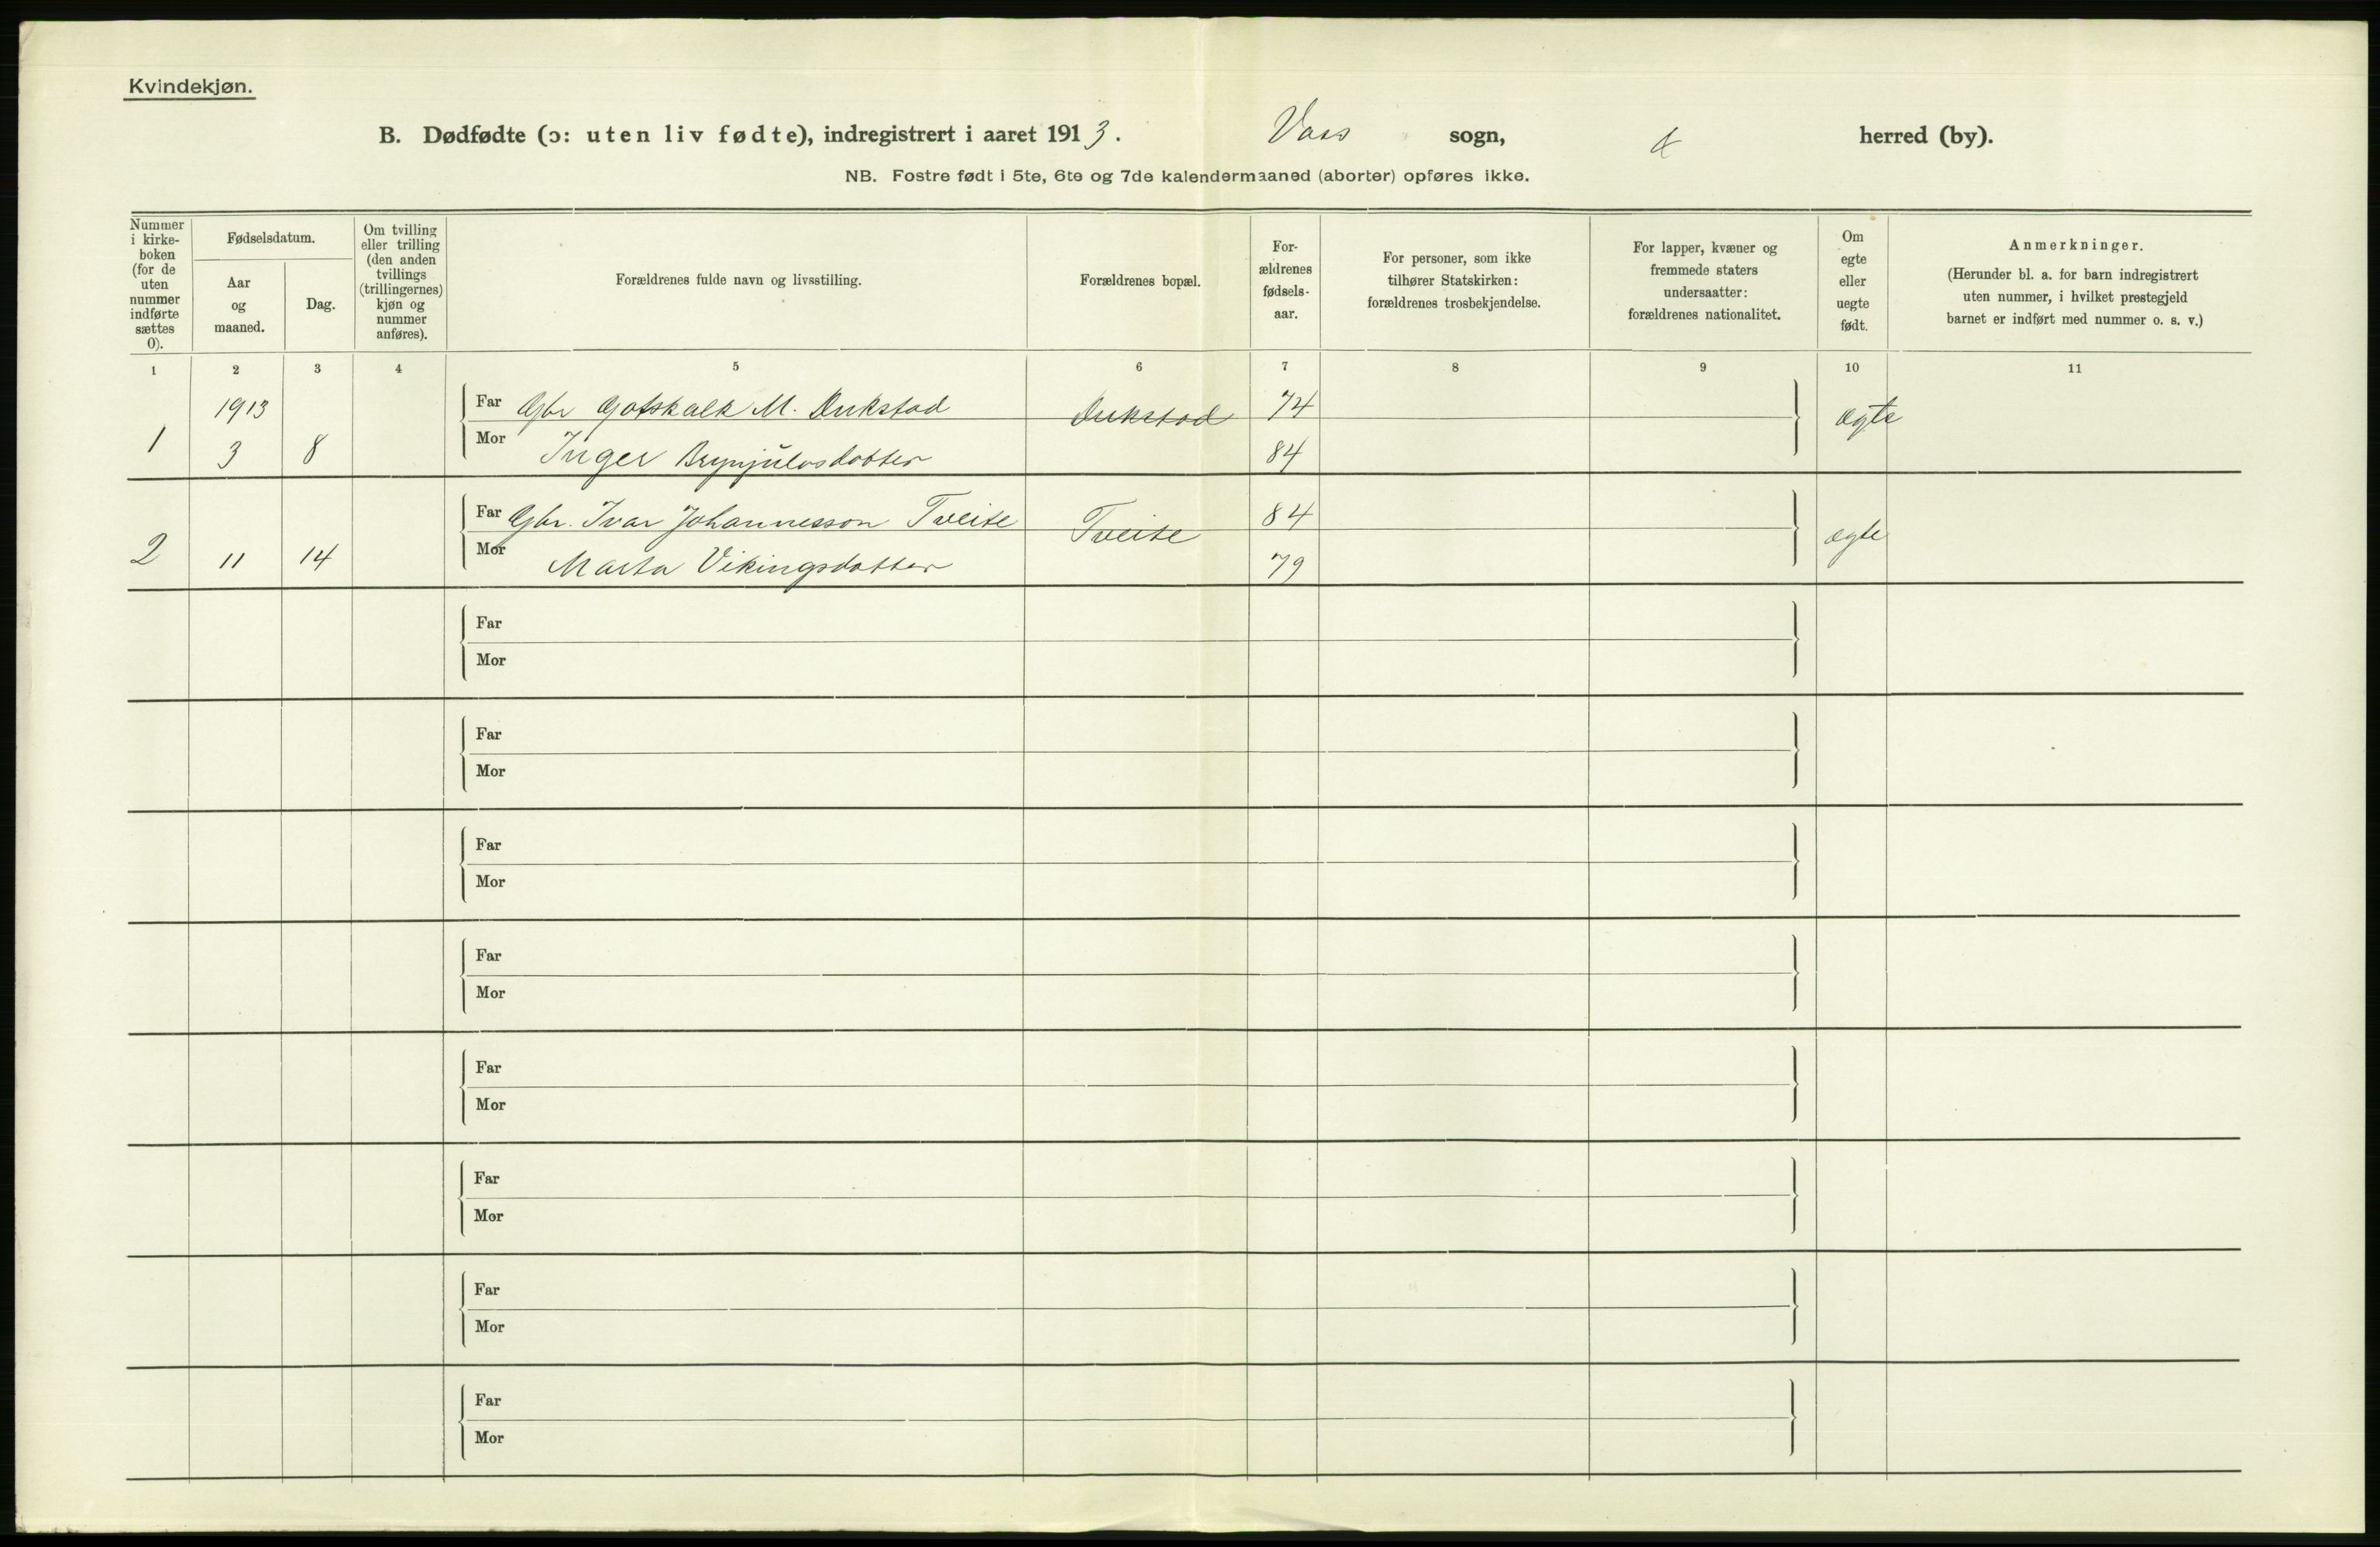 Kvindekjøn.
B. Dødfødte (ɔ: uten liv fødte), indregistrert i aaret 1913. Vass sogn, herred (by).
NB. Fostre født i 5te, 6te og 7de kalendermaaned (aborter) opføres ikke.
Nummer i kirkeboken (for de uten nummer indførte sættes 0).
Fødselsdatum.
Aar og maaned.
Dag.
Om tvilling eller trilling (den anden tvillings (trillingernes) kjøn og nummer anføres).
Forældrenes fulde navn og livsstilling.
Forældrenes bopæl.
Forældrenes fødselsaar.
For personer, som ikke tilhører Statskirken: forældrenes trosbekjendelse.
For lapper, kvæner og fremmede staters undersaatter: forældrenes nationalitet.
Om egte eller uegte født.
Anmerkninger.
(Herunder bl. a. for barn indregistrert uten nummer, i hvilket prestegjeld barnet er indført med nummer o. s. v.)
1 2 3 4 5 6 7 8 9 10 11
1913
Far Gbr Gotskalk M. Dukstad Dukstad 74 ægte
1 3 8 Mor Inger Brynjulvsdotter 84
Far Gbr. Ivar Johannesson Tveite Tveite 84 ægte
2 11 14 Mor Marta Vikingsdotter 79
Far
Mor
Far
Mor
Far
Mor
Far
Mor
Far
Mor
Far
Mor
Far
Mor
Far
Mor